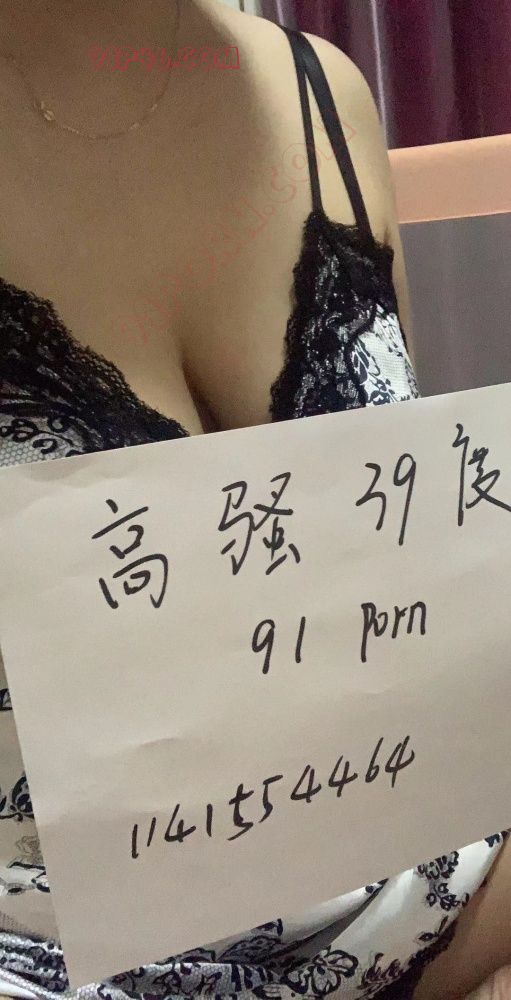 高骚39度
91 Porn
1141554464